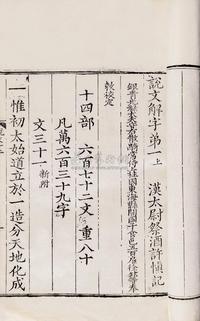 說文解字弟一上 漢太尉祭酒許慎記
銀青光祿大夫守右散騎常侍上柱國東海縣開國子食邑五百戶臣徐鉉等奉
敕校定
十四部 六百七十二文 重八十
凡萬六百三十九字
文三十一新附
一惟初太始道立於一造分天地化成